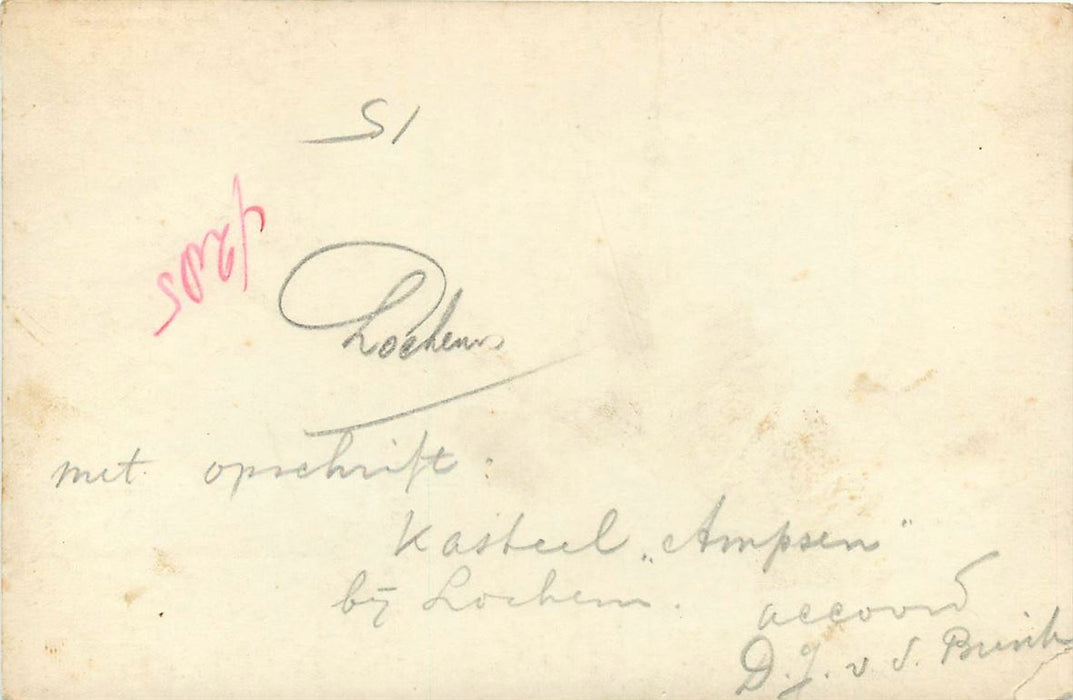 51
Lochem
met opschrift:
Kasteel „Ampsen"
bij Lochem. accoord
D. J. v d. Brink